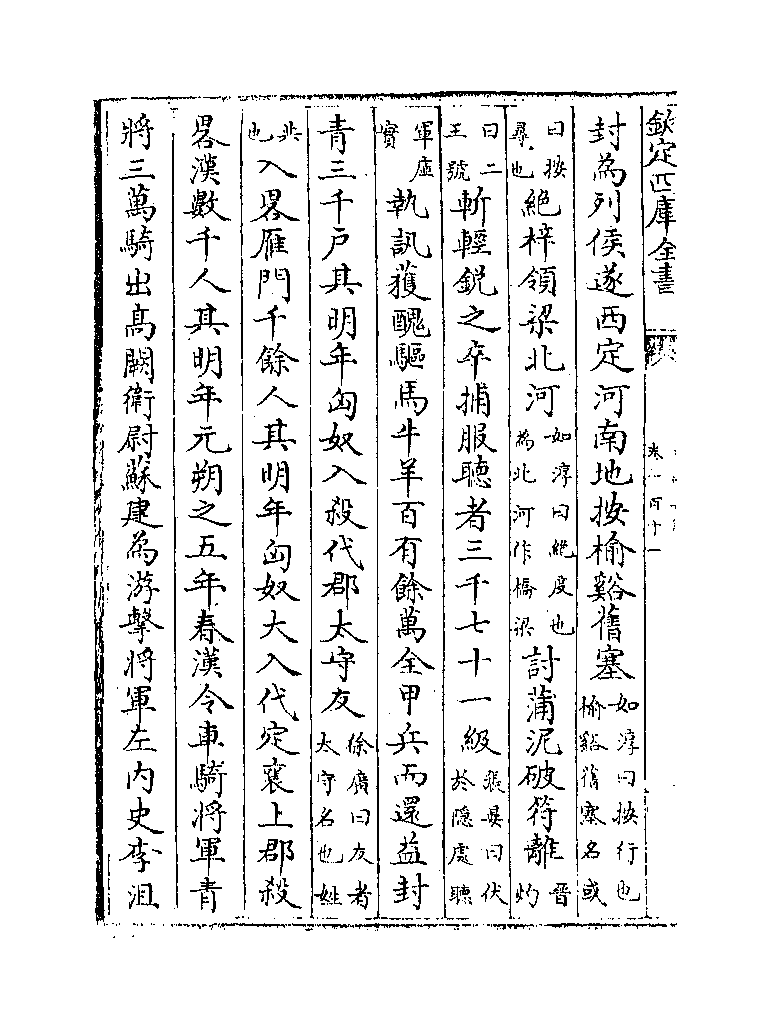 欽定四庫全書
卷一百十一
封為列侯遂西定河南地按榆谿舊塞如淳曰按行也榆谿舊塞名或
曰按尋也絶梓領梁北河如淳曰絶度也為北河作橋梁討蒲泥破符離晉灼
曰二王號斬輕銳之卒捕服聽者三千七十一級張晏曰伏於隱處聽
軍虛實執訊獲醜驅馬牛羊百有餘萬全甲兵而還益封
青三千户其明年匈奴入殺代郡太守友徐廣曰友者太守名也姓
共也入畧雁門千餘人其明年匈奴大入代定襄上郡殺
畧漢數千人其明年元朔之五年春漢令車騎將軍青
將三萬騎出高闕衛尉蘇建為游擊將軍左内史李沮